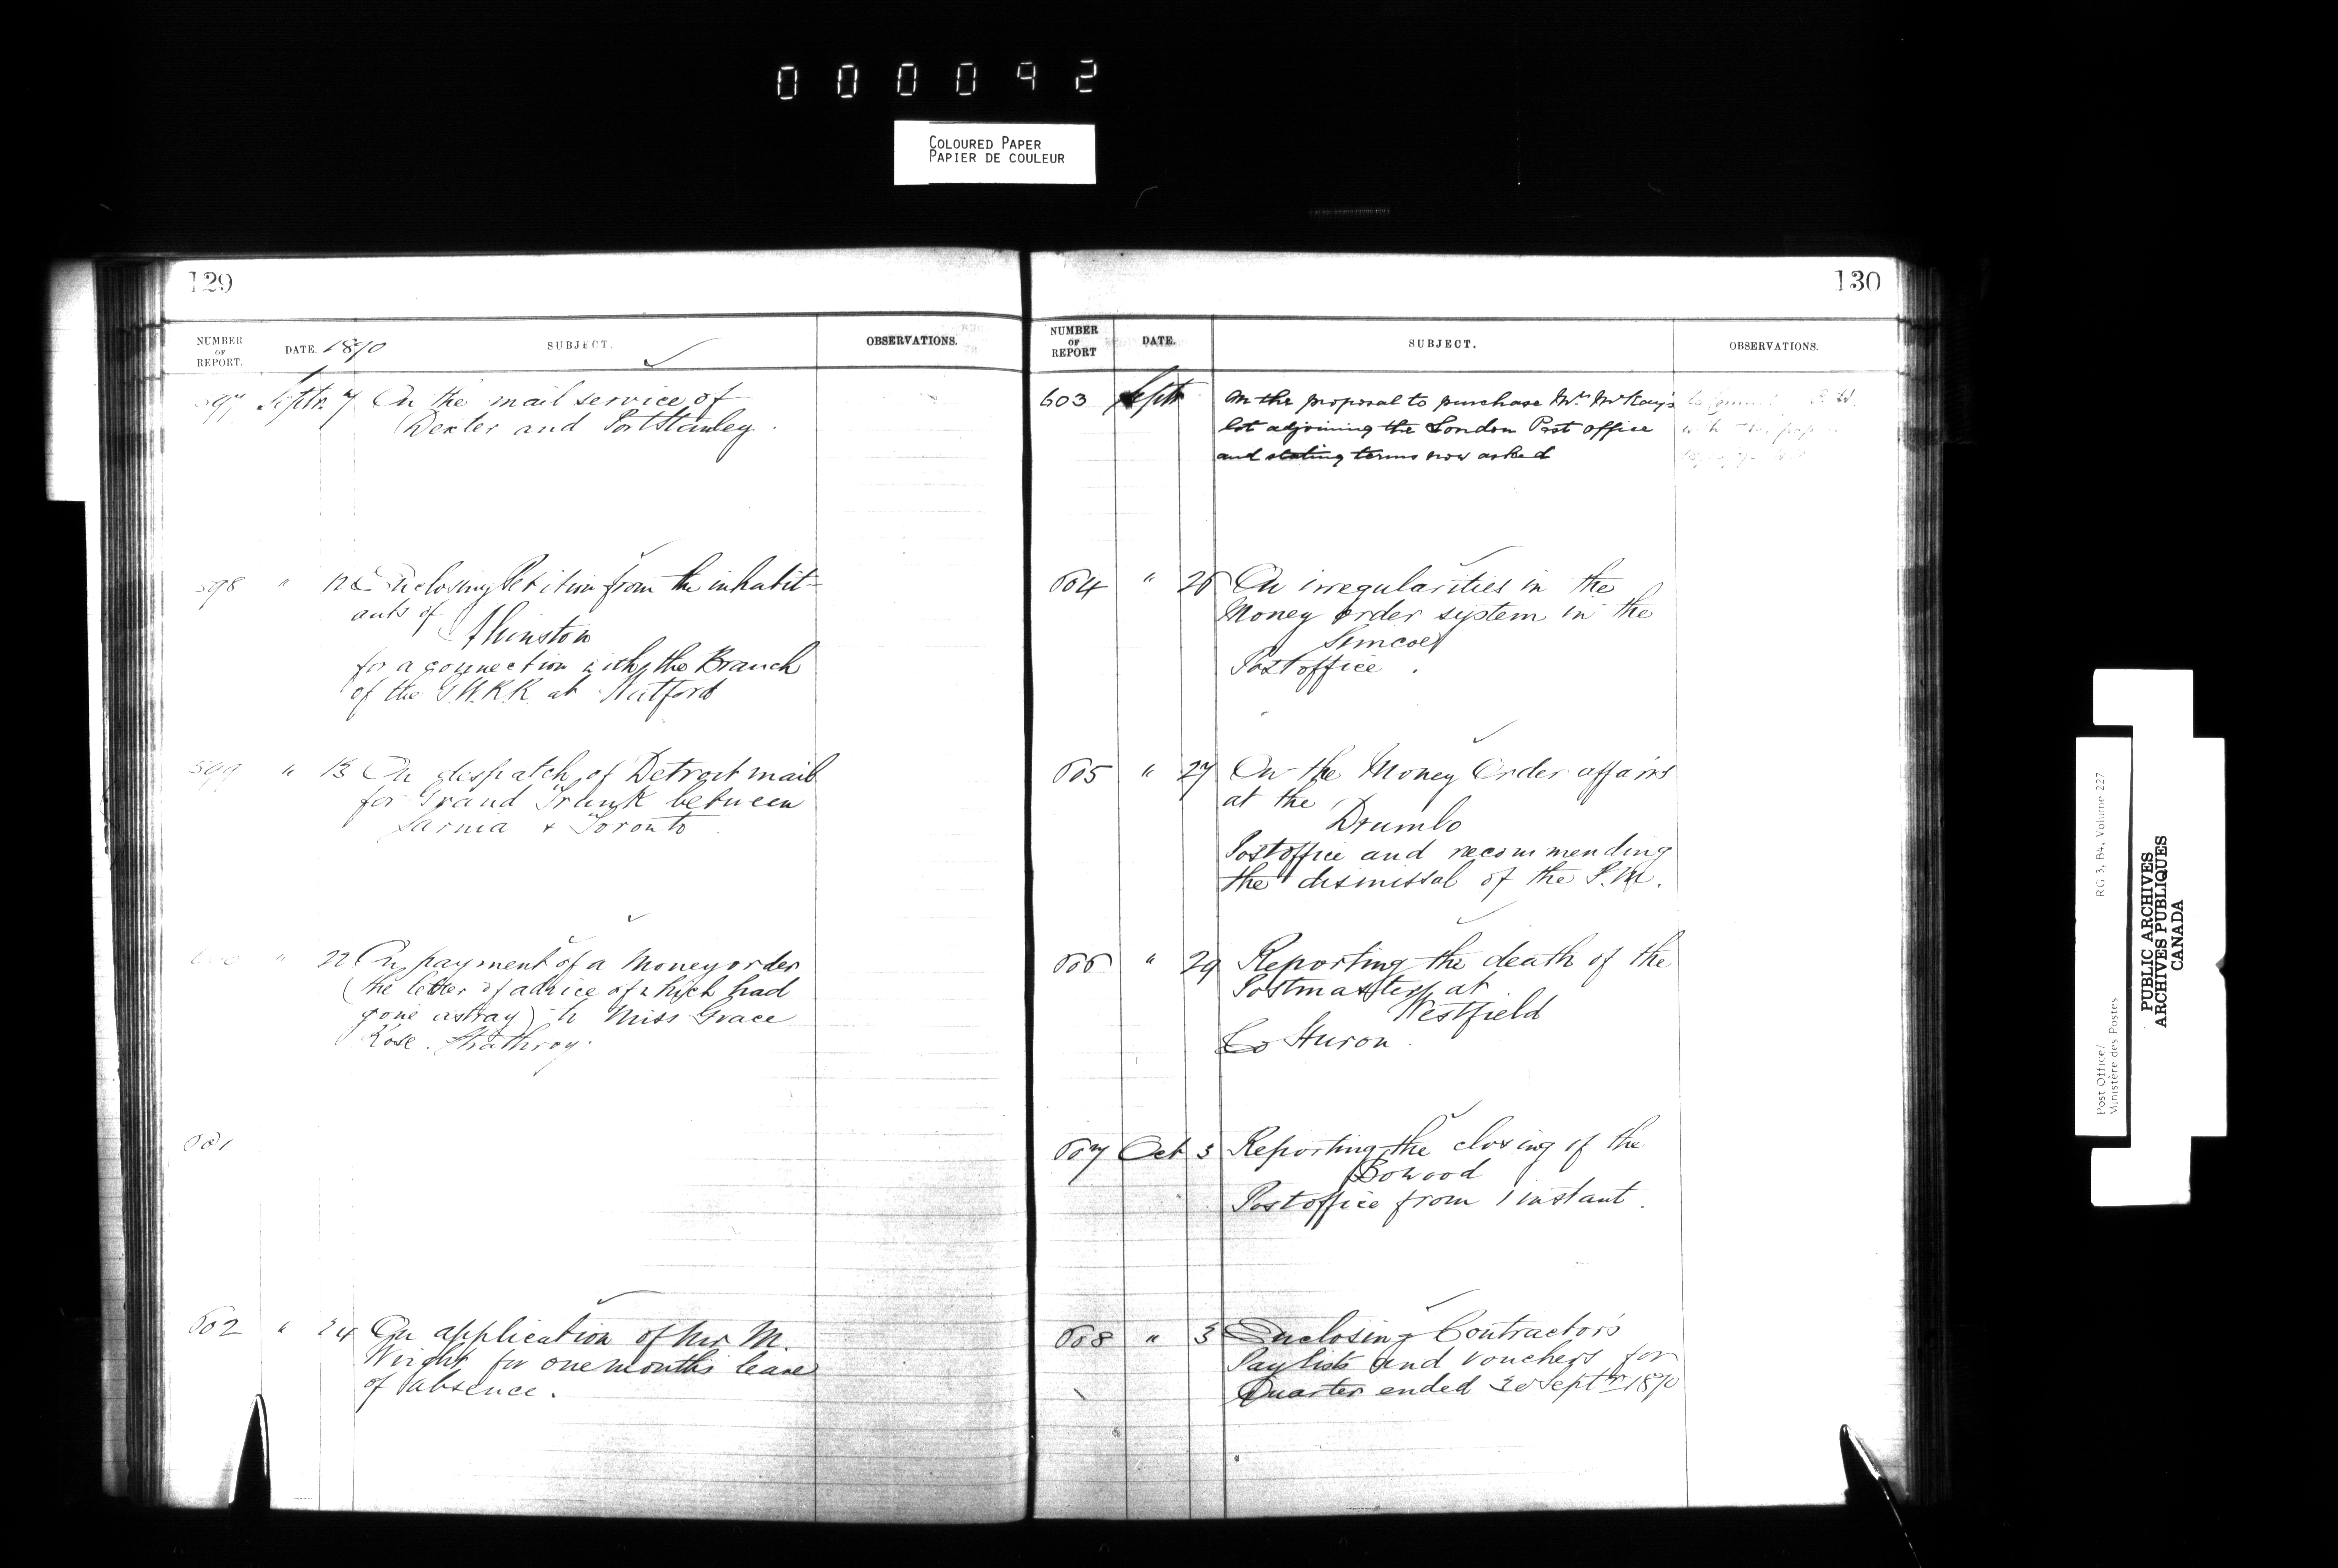 000092
COLOURED PAPER
PAPIER DE COULEUR
129
NUMBER OF REPORT. DATE. 1870 SUBJECT. OBSERVATIONS.
597 Septr. 7 On the mail service of
Dexter and Port Stanley.
598 " 12 Enclosing Petition from the inhabit-
ants of
Alvinston
for a connection with the Branch
of the G.W.R.R. at Watford
599 " 13 On dispatch of Detroit mail
for Grand Trunk between
Sarnia & Toronto
600 " 22 On payment of a Money order
(the letter of advice of which had
gone astray) to Miss Grace
Rose. Strathroy.
601
602 " 24 On application of Mr M.
Wright for one months leave
of absence.
130
NUMBER OF REPORT DATE. SUBJECT. OBSERVATIONS.
603 Septr On the proposal to purchase Mr. McKay's
lot adjoining the London Post office
and stating terms now asked
604 " 26 On irregularities in the
Money order system in the
Simcoe
Postoffice.
605 " 27 On the Money Order affairs
at the
Drumbo
Postoffice and recommending
the dismissal of the P.M.
606 " 29 Reporting the death of the
Postmaster at
Westfield
Co Huron.
607 Oct 3 Reporting the closing of the
Bowood
Postoffice from 1 instant.
608 " 3 Enclosing Contractors
Paylists and vouchers for
Quarter ended 30 Septr 1870
Post Office/ RG 3, B4, Volume 227
Ministère des Postes
PUBLIC ARCHIVES
ARCHIVES PUBLIQUES
CANADA